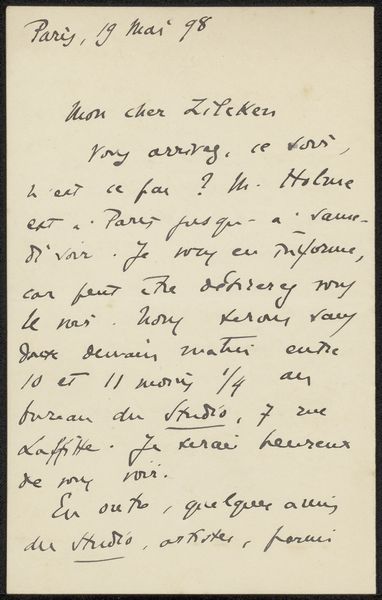 Paris, 19 Mai 98
Mon cher Zilcken
Vous arrivez, ce soir,
n'est ce pas ? M. Holme
est à Paris jusqu'à same-
di soir. Je vous en informe,
car peut être désirerez vous
le voir. Nous serons sans
doute demain matin entre
10 et 11 moins 1/4 au
bureau du Studio, 7 rue
Laffitte. Je serai heureux
de vous voir.
En outre, quelques amis
du Studio, artistes, parmi